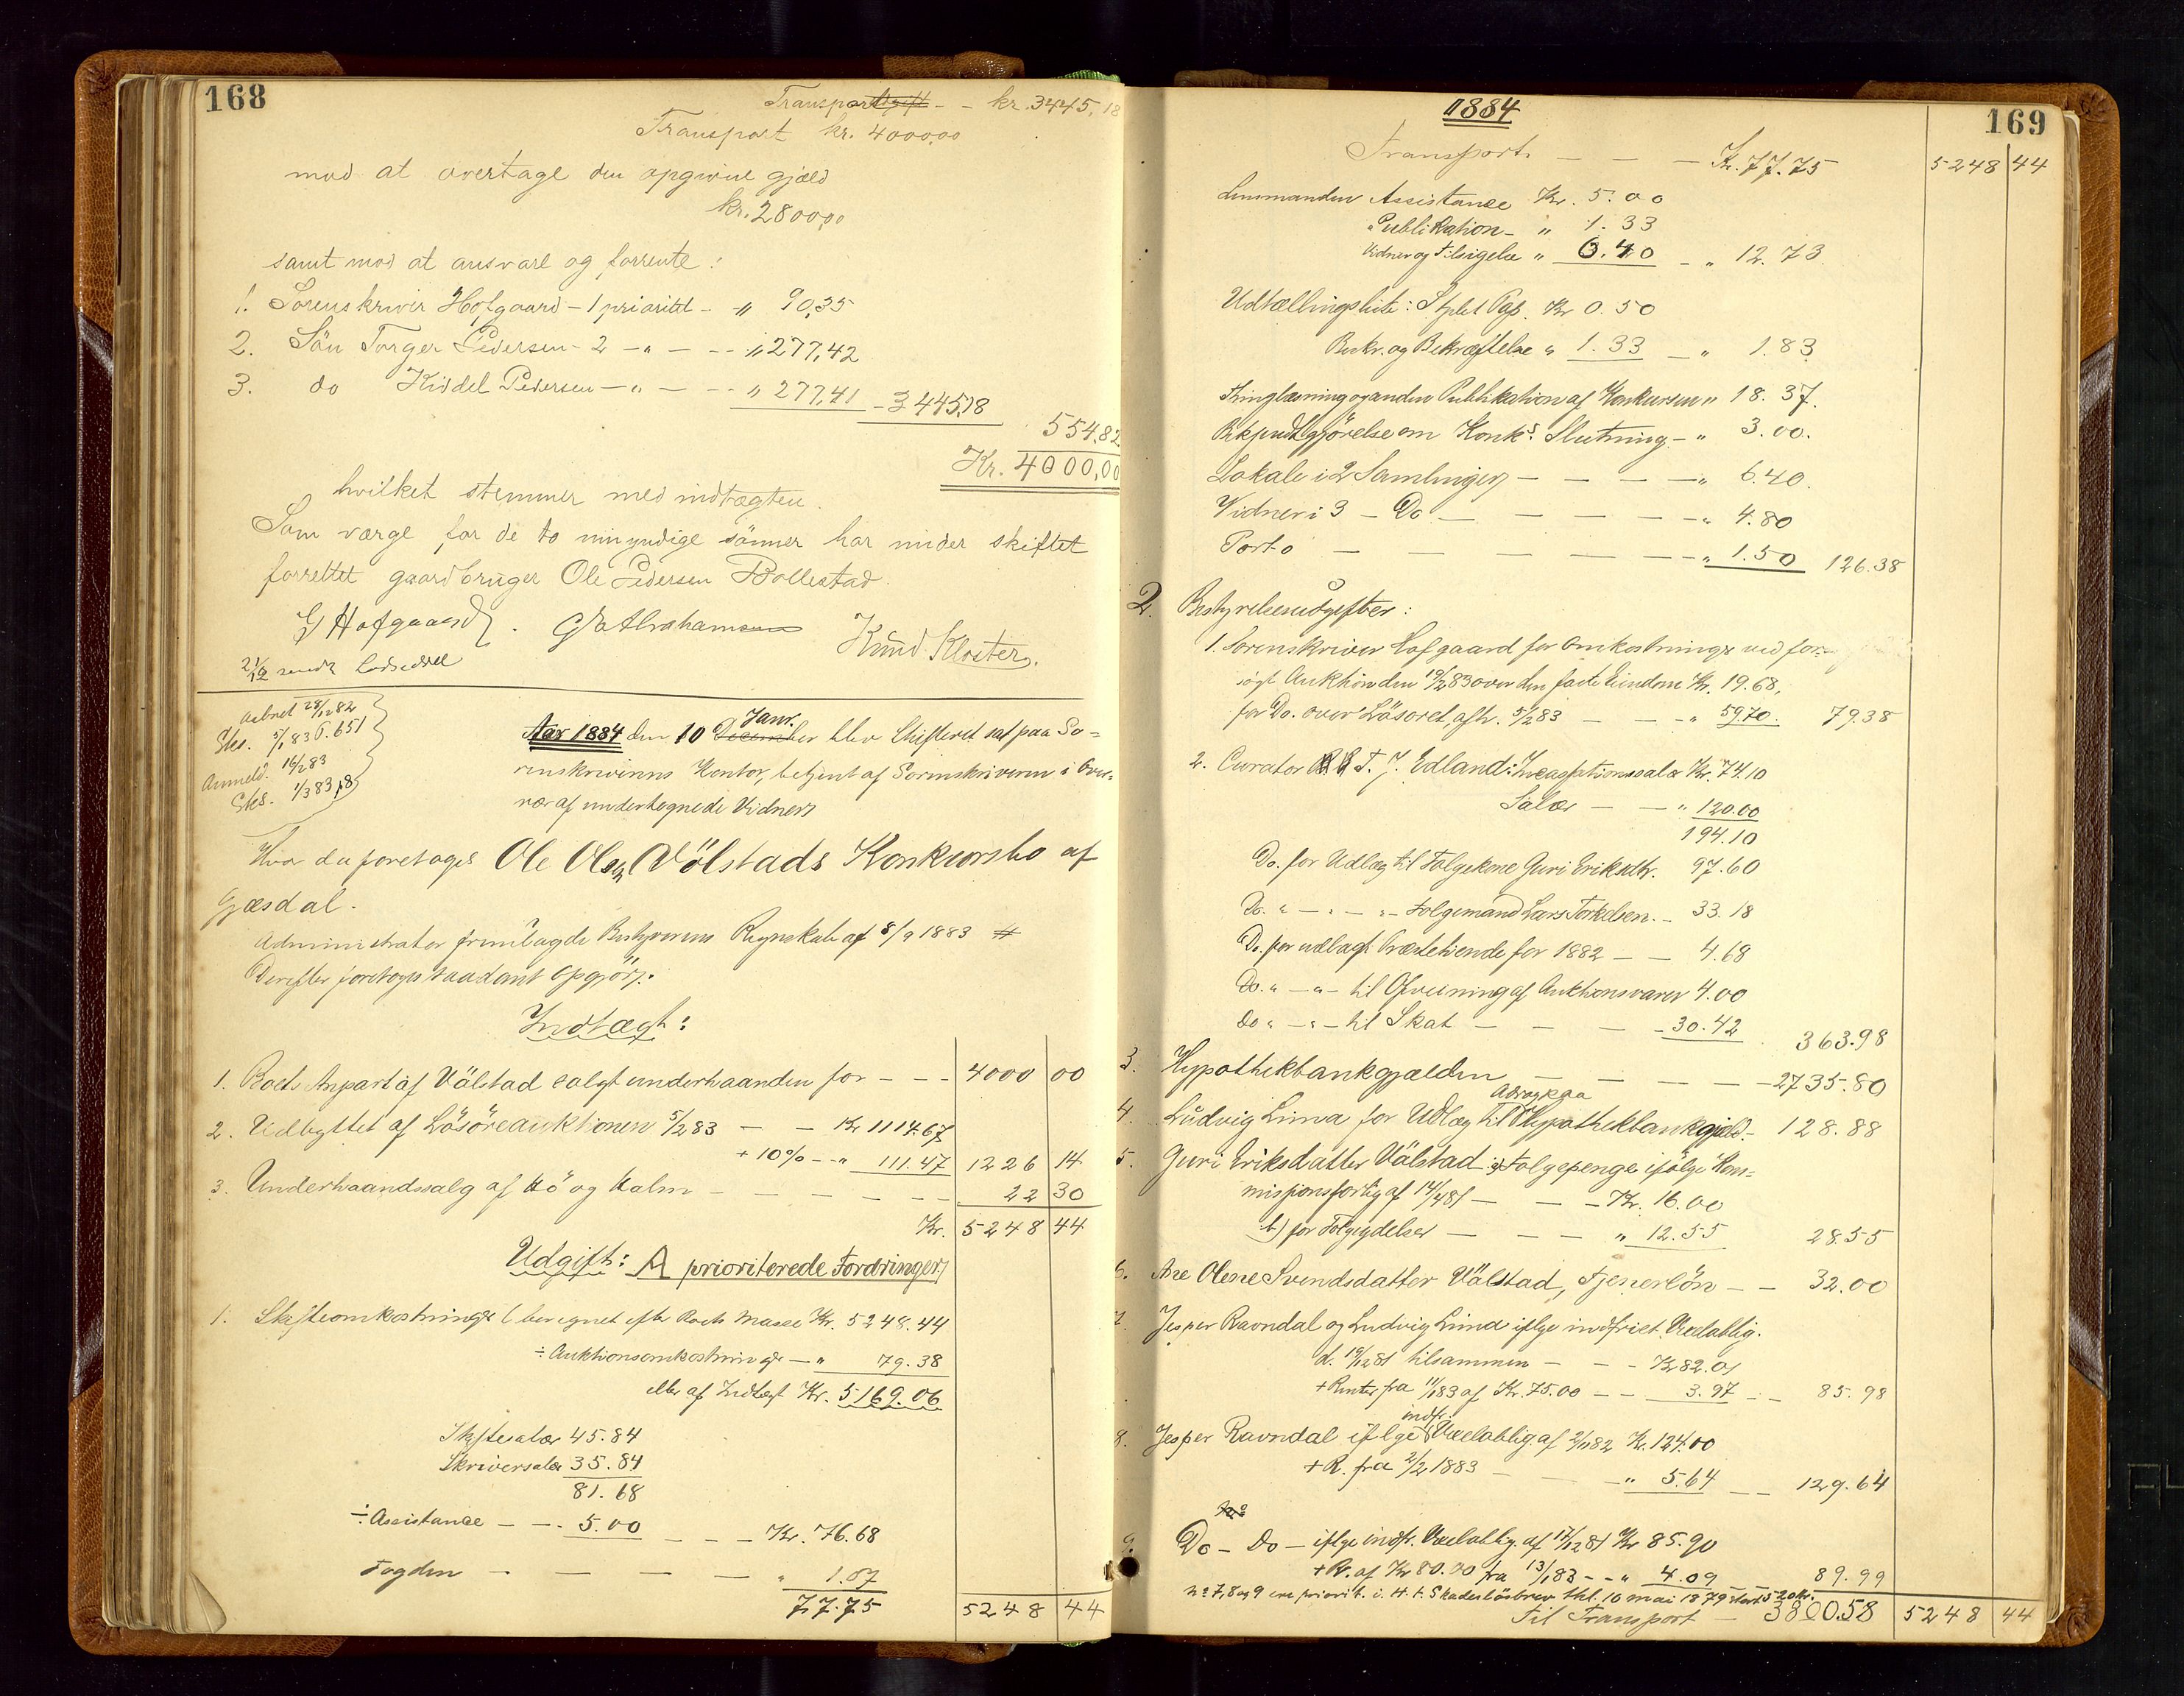 168
Transport - - kr. 3445,18
Transport kr. 4000,00
mod at overtage den opgivne gjæld
kr. 2800,00
samt mod at ansvare og forrente:
1. Sorenskriver Hofgaard - 1 prioritet - " 90,35
2. Sön Torger Pedersen - 2 - " - - - " 277,42
3. do Kiddel Pedersen - " - - - " 277,41 - 3445,18
554,82
Kr. 4000,00
hvilket stemmer med indtægten.
Som værge for de to umyndige sönner har under skiftet
forrettet gaardbruger Ole Pedersen Bollestad.
G Hofgaard. G Abrahamsen Knud Kloster.
2/12 sendt
Aabnet 28/12 82
Skr. 5/1 83 6.651
Anmeld. 16/2 83
Skr. 1/3 83,
Aar 1884 den 10 Janr. blev Skifteret sat paa So-
renskriverens Kontor, betjent af Sorenskriveren i Over-
vær af undertegnede Vidner
Hvor da foretoges Ole Olsen Völstads Konkursbo af
Gjæsdal.
Administrator fremlagde Bestyrerens Regnskab af 8/9 1883 #
Derefter foretoges saadant Opgjör:
Indtægt:
1. Boets Anpart af Välstad solgt underhaanden for - - - 4000 00
2. Udbyttet af Lösöreauktionen 5/2 83 - - Kr 1114.67
+ 10% - - " 111.47 1226 14
3. Underhaandssalg af Hö og Halm - - - - - - 22 30
Kr. 5248 44
Udgift: A prioriterede Fordringer
1. Skifteomkostninger (beregnet efter Boets Masse Kr. 5248.44
÷ Auktionsomkostninger - " 79.38
eller af Indtægt Kr. 5169.06
Skiftesalær 45.84
Skriversalær 35.84
81.68
÷ Assistance - - - 5.00 - - - Kr. 76.68
Fogden - - - - - " 1.07
77.75 5248 44
1884
169
Transport. - - - Kr. 77.75 5248 44
Lensmanden Assistance Kr. 5.00
Publikation - " 1.33
Vidner og Tilsigelse " 6.40 - " 12.73
Udtællingsliste: Stplet Pap. Kr 0.50
Beskr. og Bekræftelse " 1.33 - " 1.83
Thinglæsning og anden Publikation af Konkursen " 18.37.
Bekjendtgjörelse om Konks. Slutning - " 3.00.
Lokale i 2 Samlinger - - - - " 6.40.
Vidner i 3 - Do - - - - - " 4.80
Porto - - - - - " 1.50 126.38
2. Bestyrelsesudgifter:
1. Sorenskriver Hofgaard for Omkostninger ved for-
sögt Auktion den 19/2 83 over den faste Eiendom Kr. 19.68,
for Do. over Lösöret afh. 5/2 83 - - - " 59.70. 79.38
2. Curator T. J. Edland: Incassationssalær Kr. 74.10
Salær - - " 120.00
194.10
Do. for Udlæg til Folgekone Guri Eriksdtr. 97.60
Do. " - " - " - Folgemand Lars Torkelsen. - 33.18
Do. for udlagt Præstetiende for 1882 - - 4.68
Do. " - " - til Opvisning af Auktionsvarer 4.00
Do " - " - til Skat - - - - 30.42 363.98
3. Hypothekbankgjælden - - - - - 2735.80
4. Ludvig Lima for Udlæg til Afdrag paa Hypothekbankgjæld. - 128.88
5. Guri Eriksdatter Välstad: a) Folgepenge ifölge Kom-
missionsforlig af 14/4 81 - - - Kr. 16.00
b) for Folgeydelser - - - " 12.55 28.55
6. Ane Olene Svendsdatter Välstad, Tjenerlön - - 32.00
7. Jesper Ravndal og Ludvig Lima iflge indfriet Vexeloblig.
d. 19/12 81 tilsammen - - - Kr 82.01
+ Renter fra 11/1 83 af Kr. 75.00 - - 3.97 - - 85.98
8. Jesper Ravndal iflge indfr. Vexeloblig. af 2/1 82 Kr. 124.00
+ R. fra 2/2 1883 - - - " 5.64 - - 129.64
9. Do - Do - iflge indfr. Vexeloblig. af 17/12 81 Kr 85.90
+ R. af Kr 80.00 fra 13/1 83 - - " 4.09 89.99
No 7, 8 og 9 ere priorit. i H. t. Skadeslösbrev thl. 10 mai 1879 stort 520 Kr.
Til Transport - 3800.58 5248 44